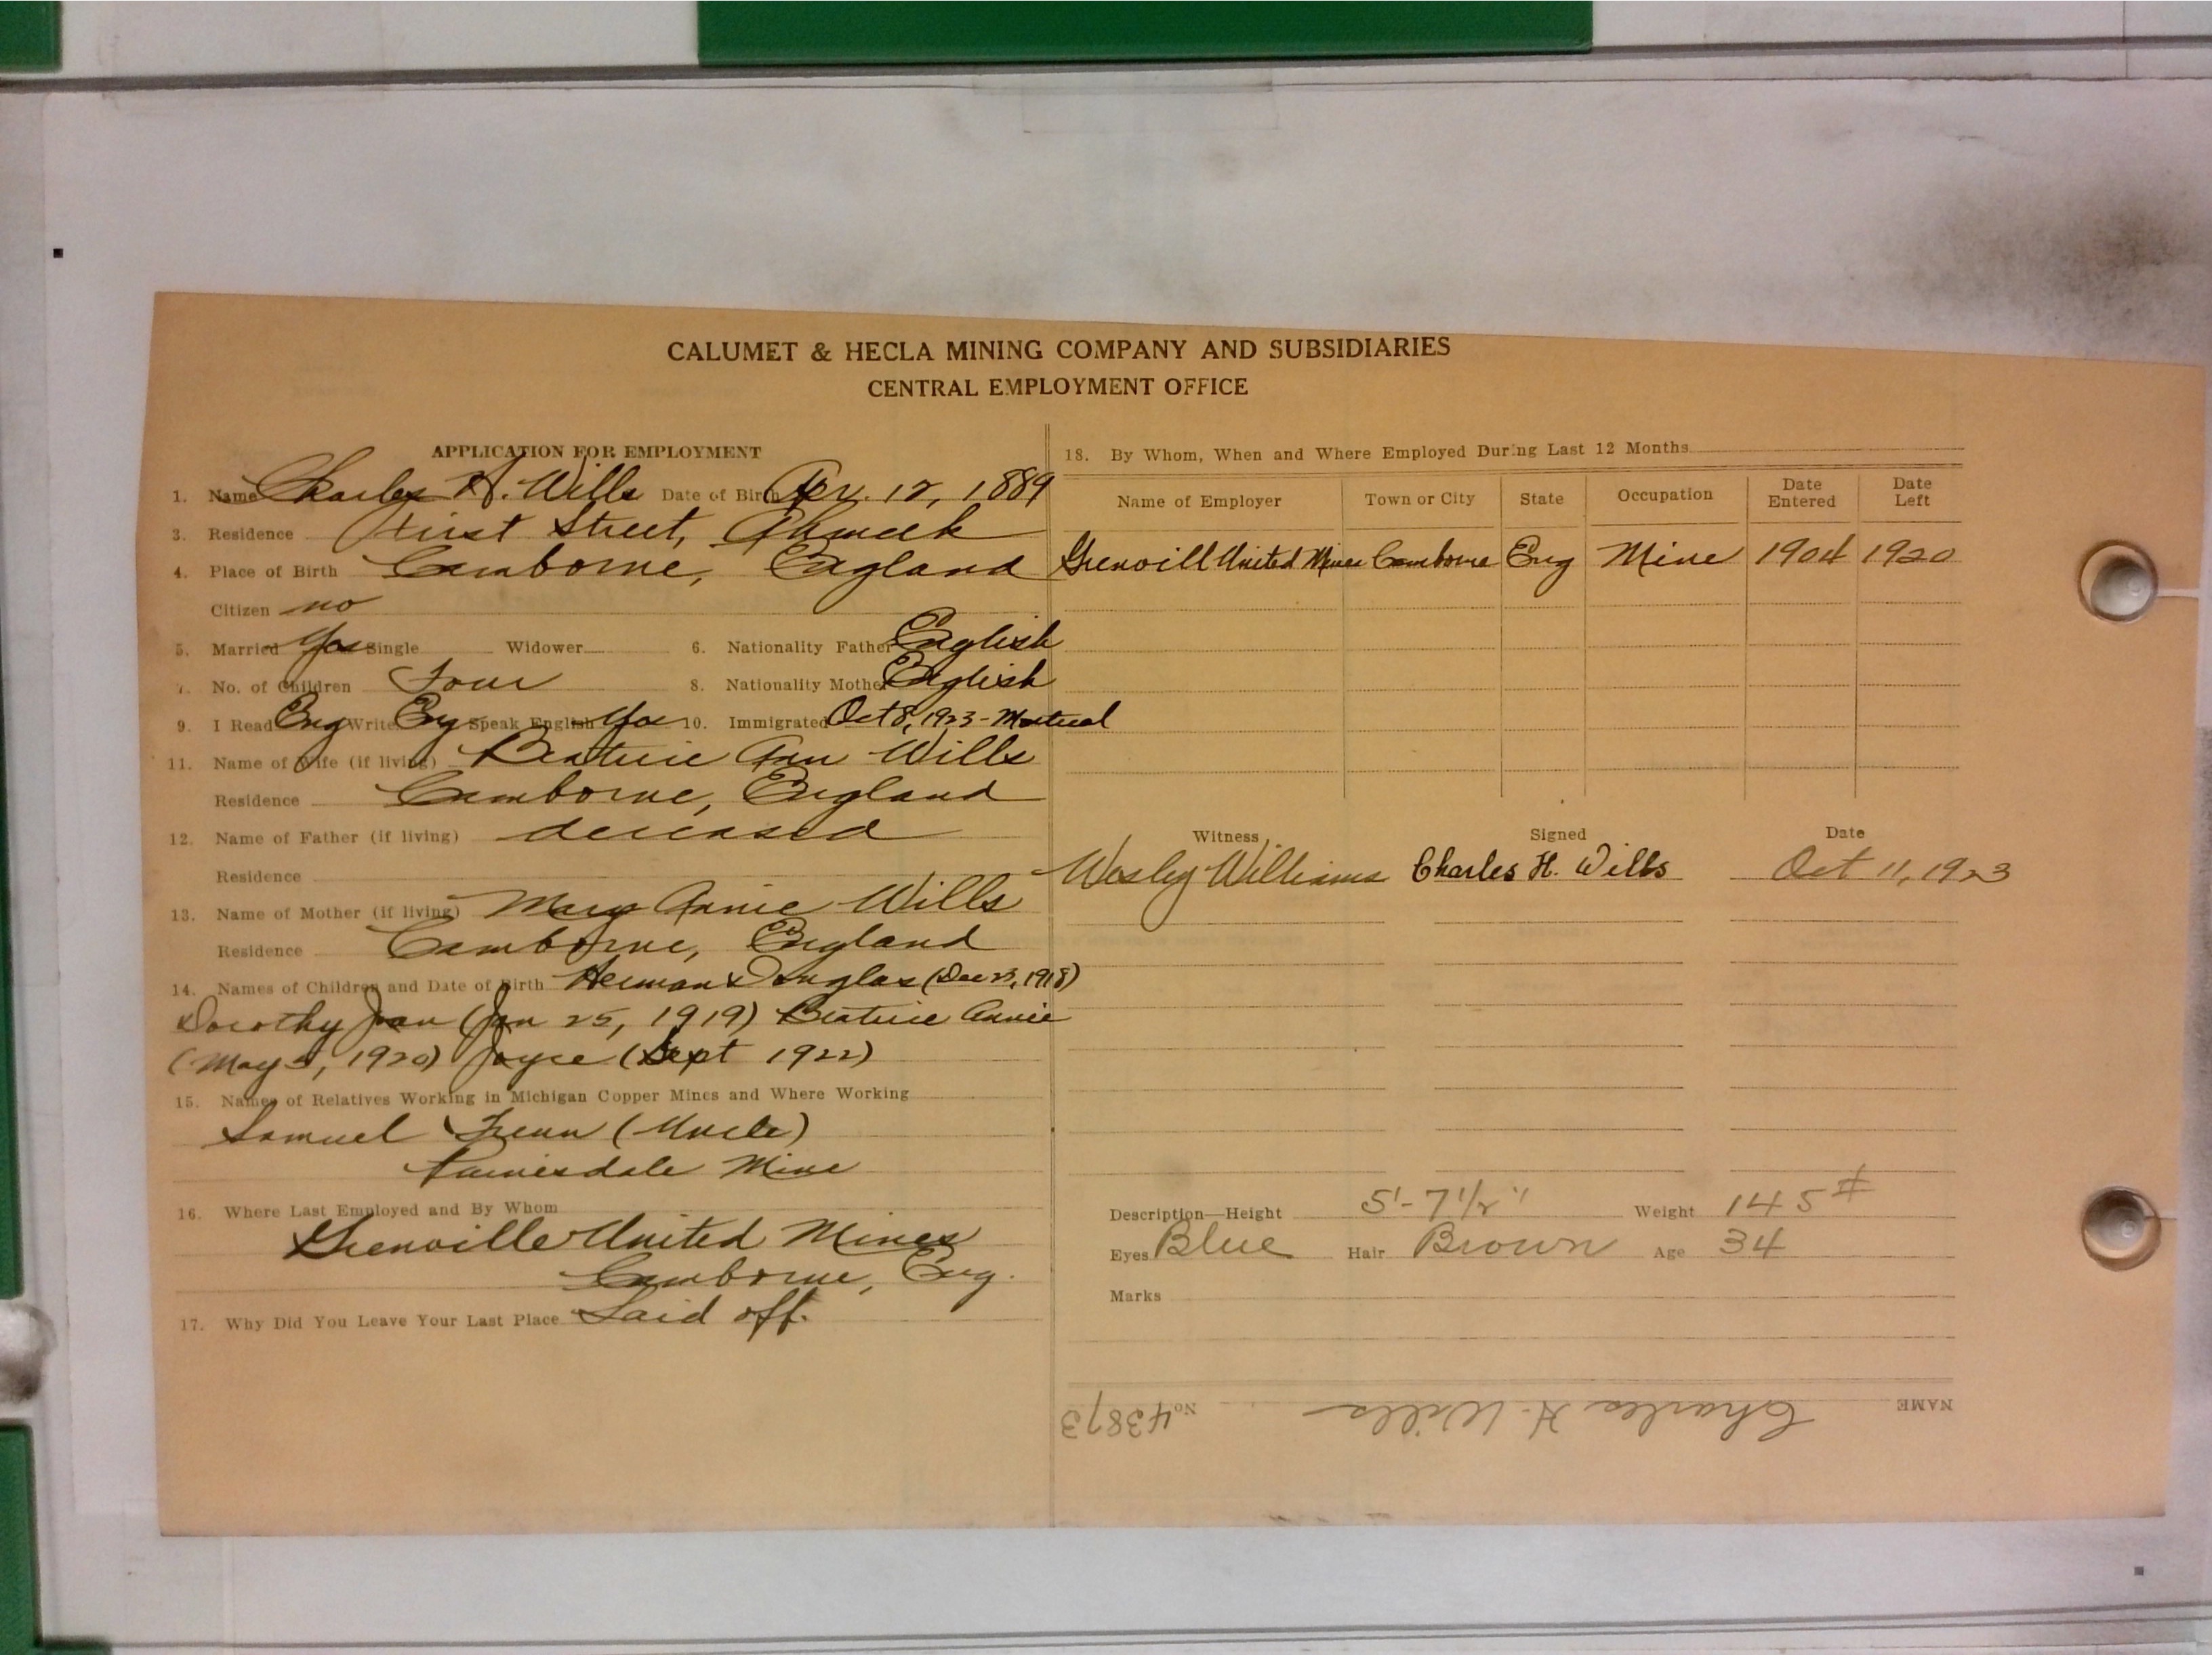 CALUMET & HECLA MINING COMPANY AND SUBSIDIARIES
CENTRAL EMPLOYMENT OFFICE
APPLICATION FOR EMPLOYMENT
1. Name Charles H. Wills Date of Birth Apr. 12, 1889
3. Residence First Street, Ahmeek
4. Place of Birth Camborne, England
Citizen no
5. Married Yes Single Widower 6. Nationality Father English
7. No. of Children Four 8. Nationality Mother English
9. I Read Eng Write Eng Speak English Yes 10. Immigrated Oct 8, 1923 -
11. Name of Wife (if living) Beatrice Ann Wills
Residence Camborne, England
12. Name of Father (if living) deceased
Residence
13. Name of Mother (if living) Mary Annie Wills
Residence Camborne, England
14. Names of Children and Date of Birth Herman Douglas (Dec 23, 1918)
Dorothy Jean (Jan 25, 1919) Beatrice Annie
(May 5, 1920) Joyce (Sept 1922)
15. Names of Relatives Working in Michigan Copper Mines and Where Working
Samuel (Uncle)
Painesdale Mine
16. Where Last Employed and By Whom
Grenville United Mines
Camborne, Eng.
17. Why Did You Leave Your Last Place Laid off.
18. By Whom, When and Where Employed During Last 12 Months
Name of Employer Town or City State Occupation Date Entered Date Left
Grenvill United Mines Camborne Eng Mine 1904 1920
Witness Signed Date
Wesley Williams Charles H. Wills Oct 11, 1923
Description—Height 5'-7 1/2" Weight 145 #
Eyes Blue Hair Brown Age 34
Marks
NAME Charles H. Wills No. 43873